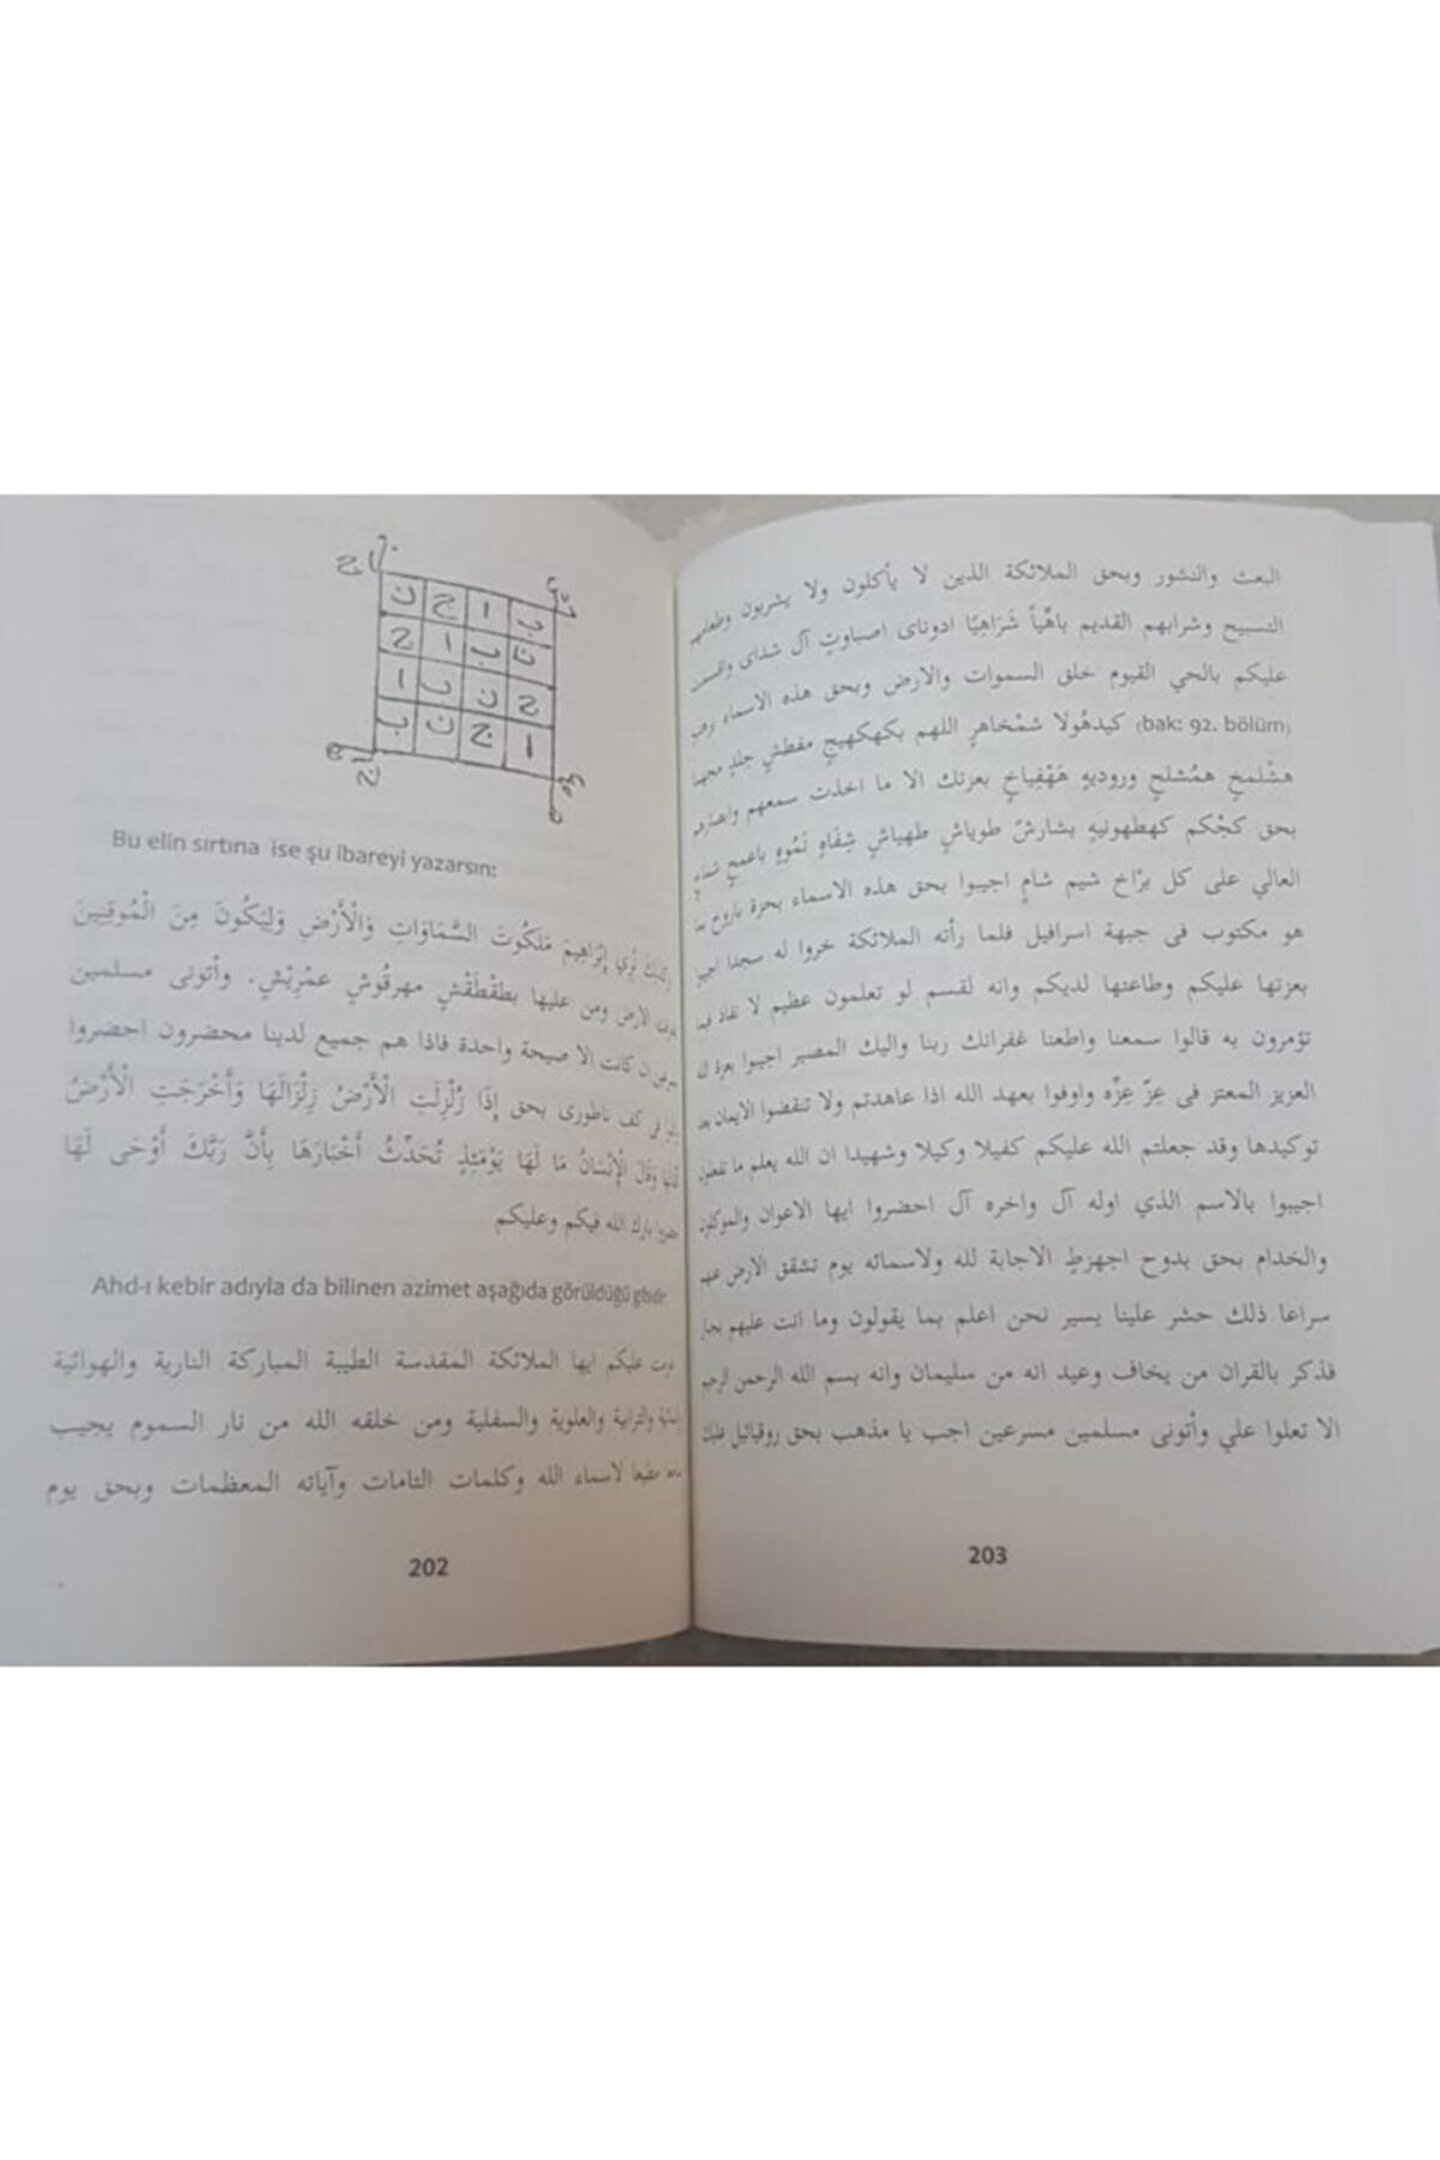 ن ج ا ب
ج ا ب ن
ا ب ن ج
ب ن ج ا
Bu elin sırtına ise şu ibareyi yazarsın:
نُرِي إِبْرَاهِيمَ مَلَكُوتَ السَّمَاوَاتِ وَالْأَرْضِ وَلِيَكُونَ مِنَ الْمُوقِنِينَ
الارض ومن عليها بطقْطَقْشٍ مهرقُوشٍ عمْرِيْشٍ. وأتونى مسلمين
ان كانت الا صيحة واحدة فاذا هم جميع لدينا محضرون احضروا
فى كف ناطورى بحق إِذَا زُلْزِلَتِ الْأَرْضُ زِلْزَالَهَا وَأَخْرَجَتِ الْأَرْضُ
وَقَالَ الْإِنْسَانُ مَا لَهَا يَوْمَئِذٍ تُحَدِّثُ أَخْبَارَهَا بِأَنَّ رَبَّكَ أَوْحَى لَهَا
بارك الله فيكم وعليكم
Ahd-ı kebir adıyla da bilinen azimet aşağıda görüldüğü gibidir:
عليكم ايها الملائكة المقدسة الطيبة المباركة النارية والهوائية
والترابية والعلوية والسفلية ومن خلقه الله من نار السموم يجيب
مطيعا لاسماء الله وكلمات التامات وآياته المعظمات وبحق يوم
202
البعث والنشور وبحق الملائكة الذين لا يأكلون ولا يشربون وطعامهم
التسبيح وشرابهم القديم باهْياً شَرَاهِيًا ادوناى اصباوتٍ آل شداى واقسمت
عليكم بالحي القيوم خلق السموات والارض وبحق هذه الاسماء
(bak: 92. bölüm) كيدهُولا شمْخاهرٍ اللهم بكهكهيجٍ مفطشٍ جلدٍ
هشْلمخٍ همْشلخٍ وروديهٍ هَهْفِياخٍ بعزتك الا ما اخذت سمعهم وابصارهم
بحق كجْكم كهطهونيهٍ بشارشٌ طوياشٍ طهياشٍ شِقَاهٍ نَمُوهٍ باعمخٍ
العالي على كل برّاخ شيم شامٍ اجيبوا بحق هذه الاسماء بحرة باروخ بما
هو مكتوب فى جبهة اسرافيل فلما رأته الملائكة خروا له سجدا اجيبوا
بعزتها عليكم وطاعتها لديكم وانه لقسم لو تعلمون عظيم لا نفاذ فيما
تؤمرون به قالوا سمعنا واطعنا غفرانك ربنا واليك المصير اجيبوا بعزة الله
العزيز المعتز فى عِزّ عِزّه واوفوا بعهد الله اذا عاهدتم ولا تنقضوا الايمان بعد
توكيدها وقد جعلتم الله عليكم كفيلا وكيلا وشهيدا ان الله يعلم ما تفعلون
اجيبوا بالاسم الذي اوله آل واخره آل احضروا ايها الاعوان والموكلون
والخدام بحق بدوح اجهزطٍ الاجابة لله ولاسمائه يوم تشقق الارض عنهم
سراعا ذلك حشر علينا يسير نحن اعلم بما يقولون وما انت عليهم بجبار
فذكر بالقران من يخاف وعيد انه من سليمان وانه بسم الله الرحمن الرحيم
الا تعلوا علي وأتونى مسلمين مسرعين اجب يا مذهب بحق روقيائيل عليك
203